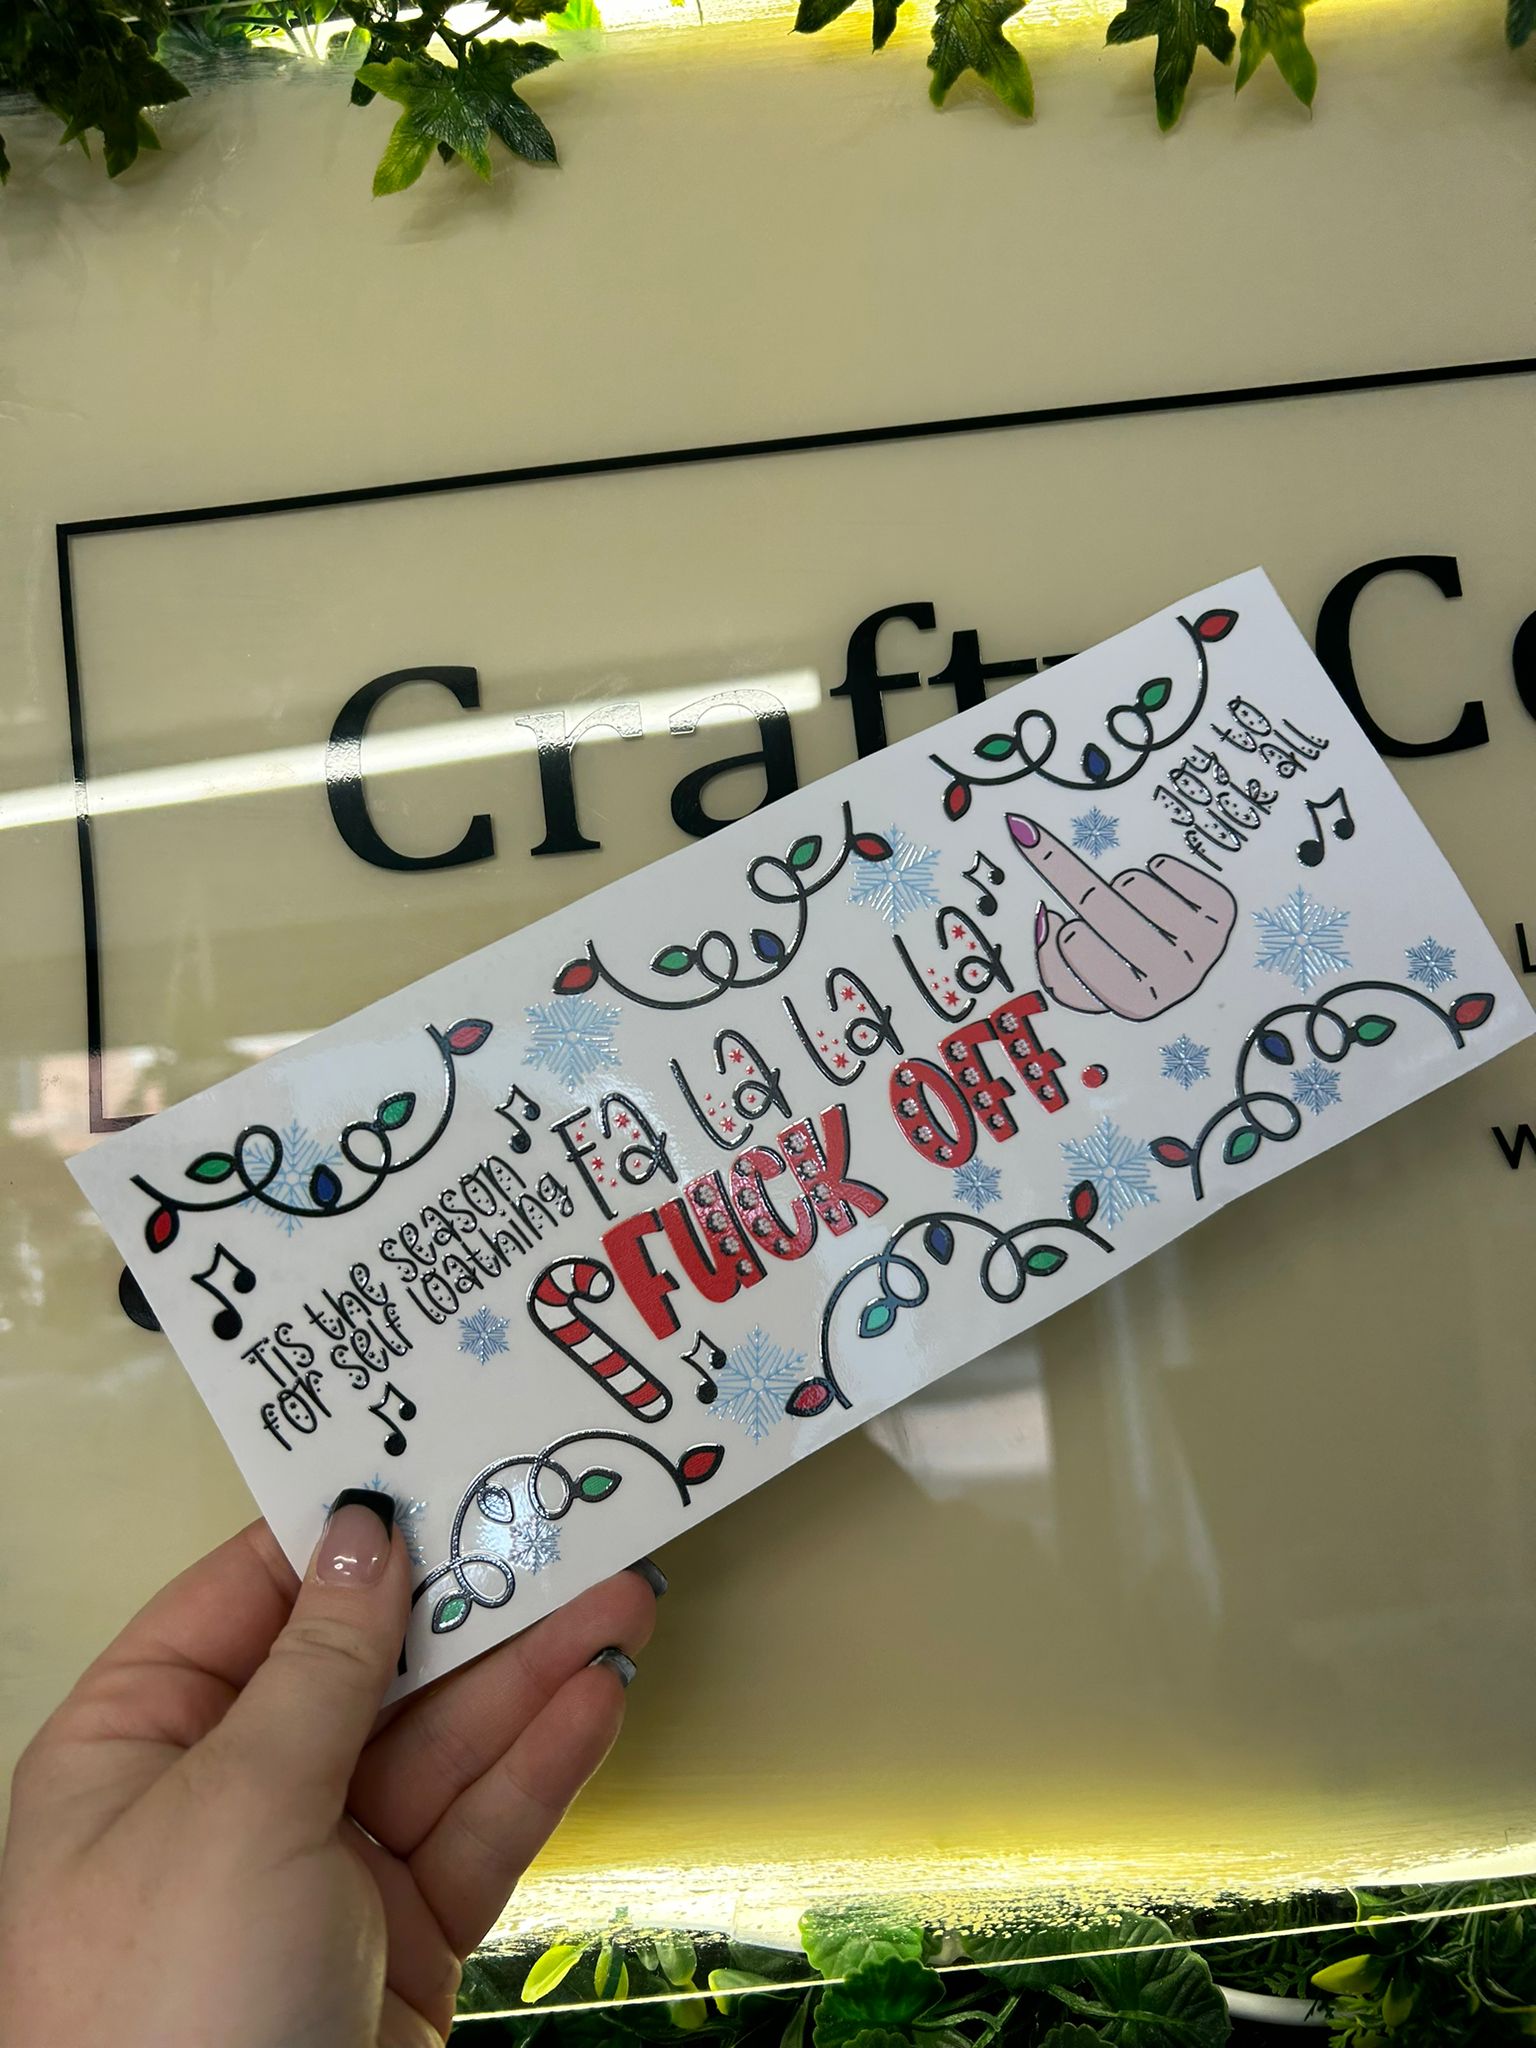 Crafty
'Tis the season
for self loathing
Fa La La La
FUCK OFF.
Joy to
fuck all